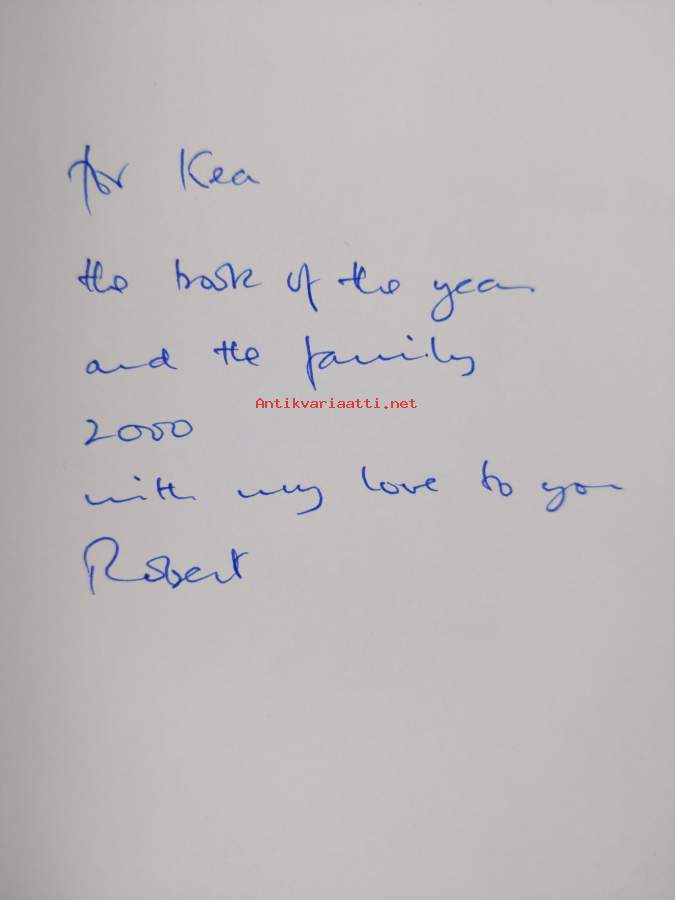 for Kea
the book of the year
and the family
Antikvariaatti.net
2000
with my love to you
Robert